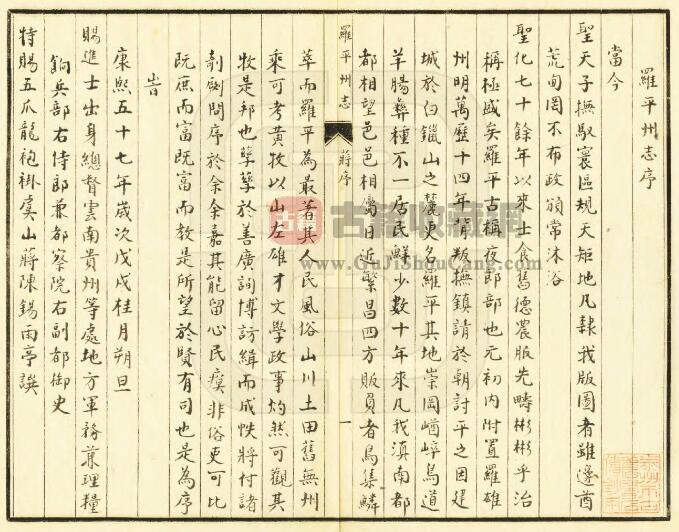 羅平州志序
當今
聖天子撫馭寰區規天矩地凡隸我版圖者雖邊酋
荒甸罔不布政頒常沐浴
聖化七十餘年以來士食舊德農服先疇彬彬乎治
稱極盛矣羅平古稱夜郎部也元初內附置羅雄
州明萬歷十四年背叛撫鎮請於朝討平之因建
城於白鑞山之麓更名羅平其地崇岡崷崪鳥道
羊腸彝種不一居民鮮少數十年來凡我滇南都
都相望邑邑相屬日近繁昌四方販負者鳥集鱗
羅平州志
蔣序
一
萃而羅平為最著其人民風俗山川土田舊無州
乘可考黃牧以山左雄才文學政事灼然可觀其
牧是邦也孳孳於善廣詢博訪緝而成帙將付諸
剞劂問序於余余嘉其能留心民瘼非俗吏可比
既庶而富既富而教是所望於賢有司也是為序
旹
康熙五十七年歲次戊戌桂月朔旦
賜進士出身總督雲南貴州等處地方軍務兼理糧
餉兵部右侍郎兼都察院右副都御史
特賜五爪龍袍褂虞山蔣陳錫雨亭譔
古籍
古籍收藏网
www.GuJiShouCang.com